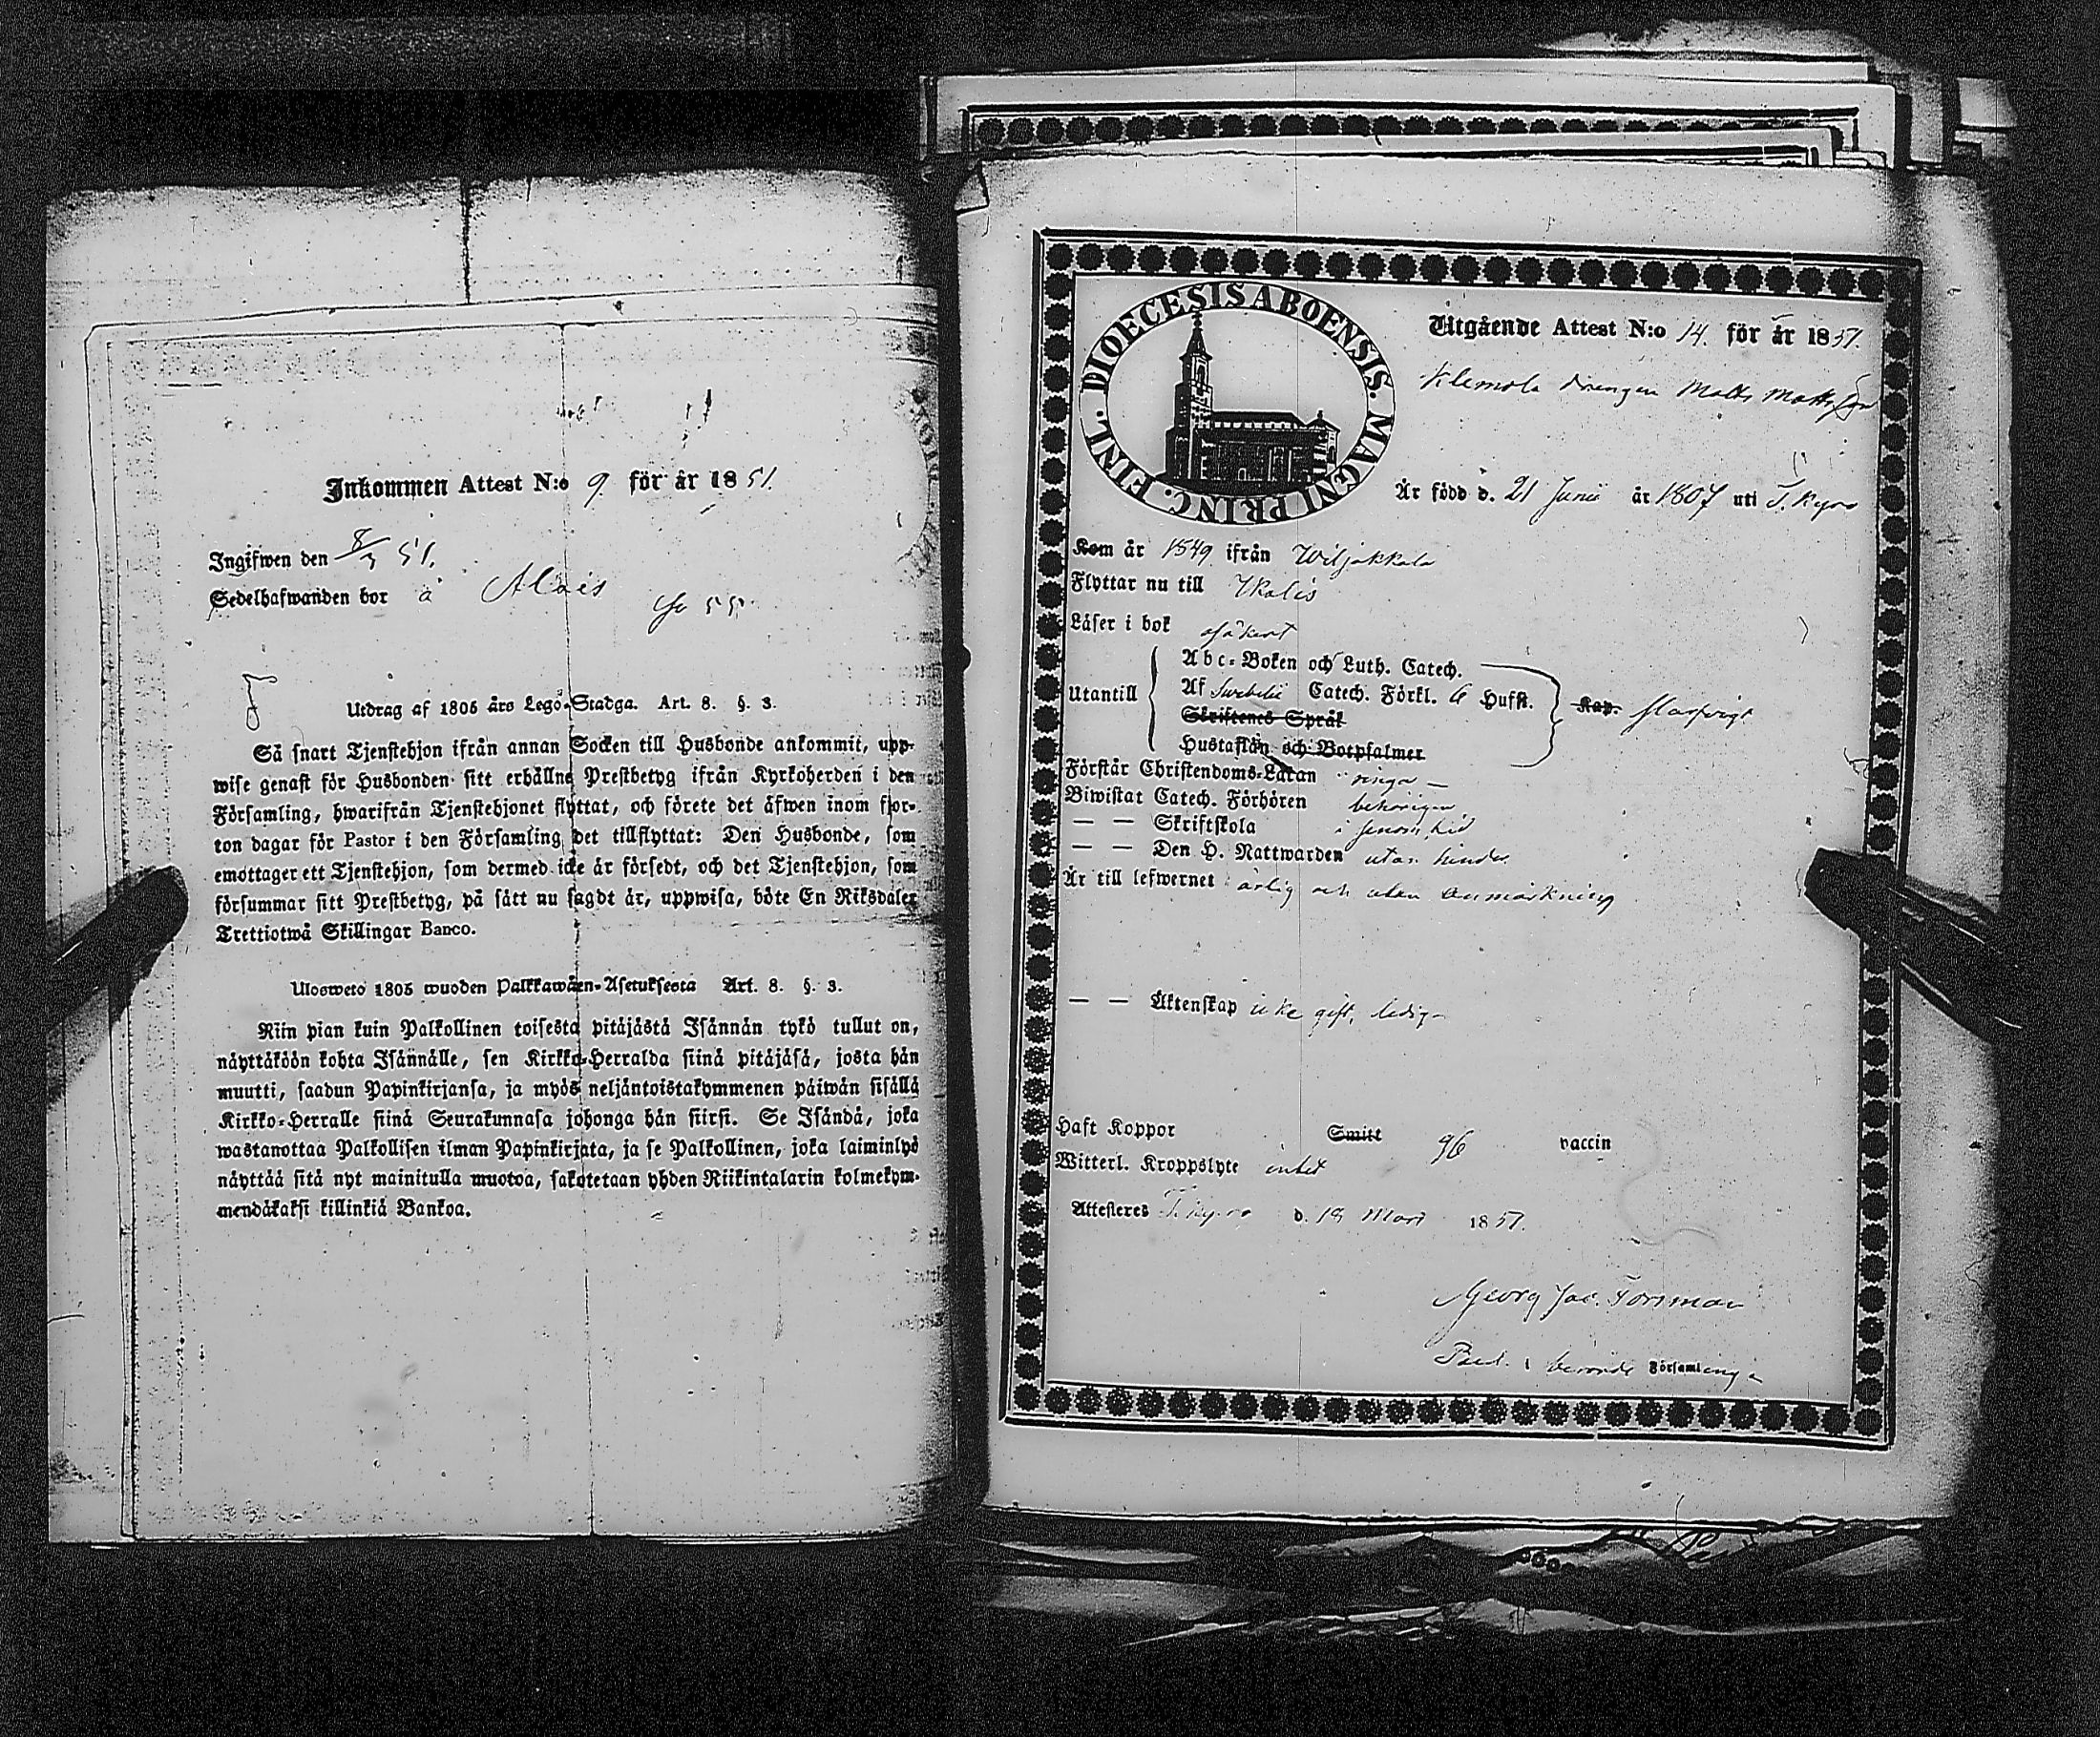 Inkommen Attest N:o 9. för år 1851.
Ingifwen den 8/3 51.
Sedelhafwanden bor å Alois
fo 55
Utdrag af 1805 års Lego-Stadga. Art. 8. §. 3.
Så snart Tjenstehjon ifrån annan Socken till Husbonde ankommit, upp-
wise genast för Husbonden sitt erhållne Prestbetyg ifrån Kyrkoherden i den
Församling, hwarifrån Tjenstehjonet flyttat, och förete det äfwen inom fjor-
ton dagar för Pastor i den Församling det tillflyttat: Den Husbonde, som
emottager ett Tjenstehjon, som dermed icke är försedt, och det Tjenstehjon, som
försummar sitt Prestbetyg, på sätt nu sagdt är, uppwisa, böte En Riksdaler
Trettiotwå Skillingar Banco.
Ulosweto 1805 wuoden Palkkawäen-Asetuksesta Art. 8. §. 3.
Niin pian kuin Palkollinen toisesta pitäjästä Isännän tykö tullut on,
näyttäköön kohta Isännälle, sen Kirkko-Herralda siinä pitäjäsä, josta hän
muutti, saadun Papinkirjansa, ja myös neljäntoistakymmenen päiwän sisällä
Kirkko-Herralle siinä Seurakunnasa johonga hän siirsi. Se Isändä, joka
wastanottaa Palkollisen ilman Papinkirjata, ja se Palkollinen, joka laiminlyö
näyttää sitä nyt mainitulla muotoa, sakotetaan yhden Riikintalarin kolmekym-
mendäkaksi killinkiä Bankoa.
FINL. DIOECESIS ABOENSIS. MAGNI PRINC.
Utgående Attest N:o 14. för år 1851.
Klemola drengen Matts Mattsson
Är född d. 21 Junii år 1807 uti T. Kyro
Kom år 1849 ifrån Wiljakkala
Flyttar nu till Ikalis
Läser i bok osäkert
Utantill
Abc-Boken och Luth. Catech.
Af Svebilii Catech. Förkl. 6 Hufst.
Skriftenes Språk
Hustaflan och Botpsalmer
Kap. slarfvigt
Förstår Christendoms-Läran ringa
Biwistat Catech. Förhören behörigen
— — Skriftskola i sinom tid
— — Den H. Nattwarden utan hinder
Är till lefwernet ärlig och utan anmärkning
— — Äktenskap icke gift, ledig
Haft Koppor Smitt vaccin
Witterl. Kroppslyte intet
Attesteres T. Kyro d. 18 Mars 1851.
Georg Jac. Forsman
Församling